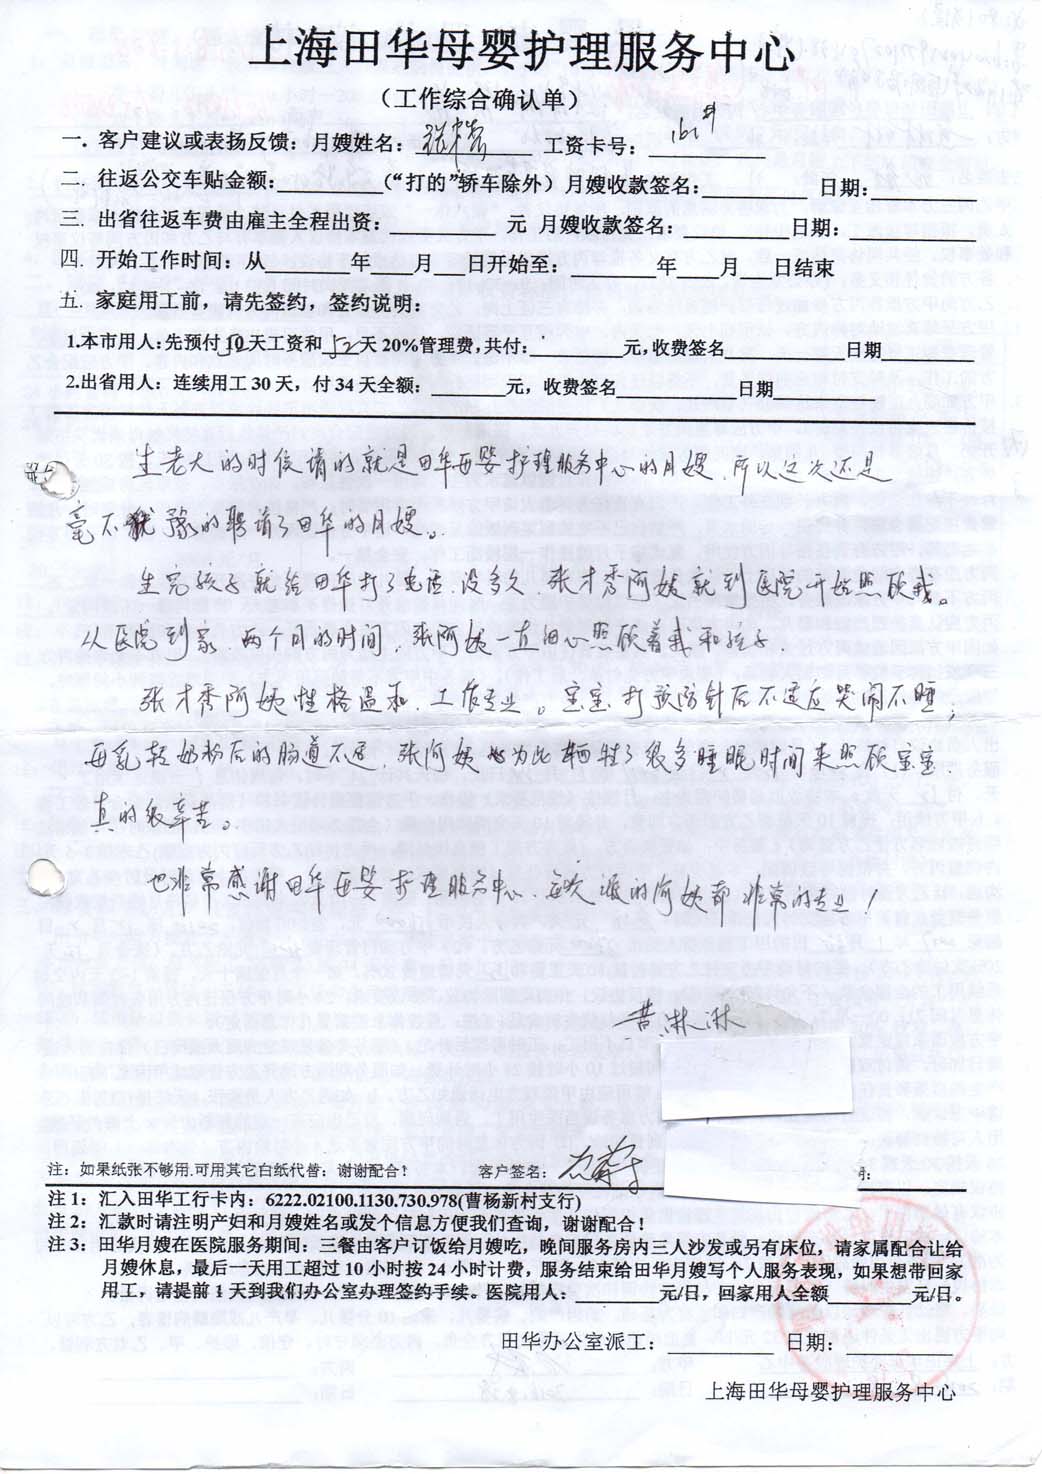 上海田华母婴护理服务中心
（工作综合确认单）
一. 客户建议或表扬反馈：月嫂姓名： 工资卡号：161#
二. 往返公交车贴金额： （“打的”轿车除外）月嫂收款签名： 日期：
三. 出省往返车费由雇主全程出资： 元 月嫂收款签名： 日期：
四. 开始工作时间：从 年 月 日开始至： 年 月 日结束
五. 家庭用工前，请先签约，签约说明：
1.本市用人：先预付10天工资和52天20%管理费，共付： 元，收费签名 日期
2.出省用人：连续用工30天，付34天全额： 元，收费签名 日期
生老大的时候请的就是田华母婴护理服务中心的月嫂，所以这次还是
毫不犹豫的聘请了田华的月嫂。
生完孩子就给田华打了电话，没多久，张才秀阿姨就到医院开始照顾我。
从医院到家，两个月的时间，张阿姨一直细心照顾着我和孩子。
张才秀阿姨性格温和，工作专业。宝宝打预防针后不适应哭闹不睡，
母乳转奶粉后的肠道不适，张阿姨为此牺牲了很多睡眠时间来照顾宝宝
真的很辛苦。
也非常感谢田华母婴护理服务中心，每次派的阿姨都非常的专业！
黄淋淋
注：如果纸张不够用.可用其它白纸代替：谢谢配合！ 客户签名：
注1：汇入田华工行卡内：6222.02100.1130.730.978(曹杨新村支行)
注2：汇款时请注明产妇和月嫂姓名或发个信息方便我们查询，谢谢配合！
注3：田华月嫂在医院服务期间：三餐由客户订饭给月嫂吃，晚间服务房内三人沙发或另有床位，请家属配合让给
月嫂休息，最后一天用工超过10小时按24小时计费，服务结束给田华月嫂写个人服务表现，如果想带回家
用工，请提前1天到我们办公室办理签约手续。医院用人： 元/日，回家用人全额 元/日。
田华办公室派工： 日期：
上海田华母婴护理服务中心